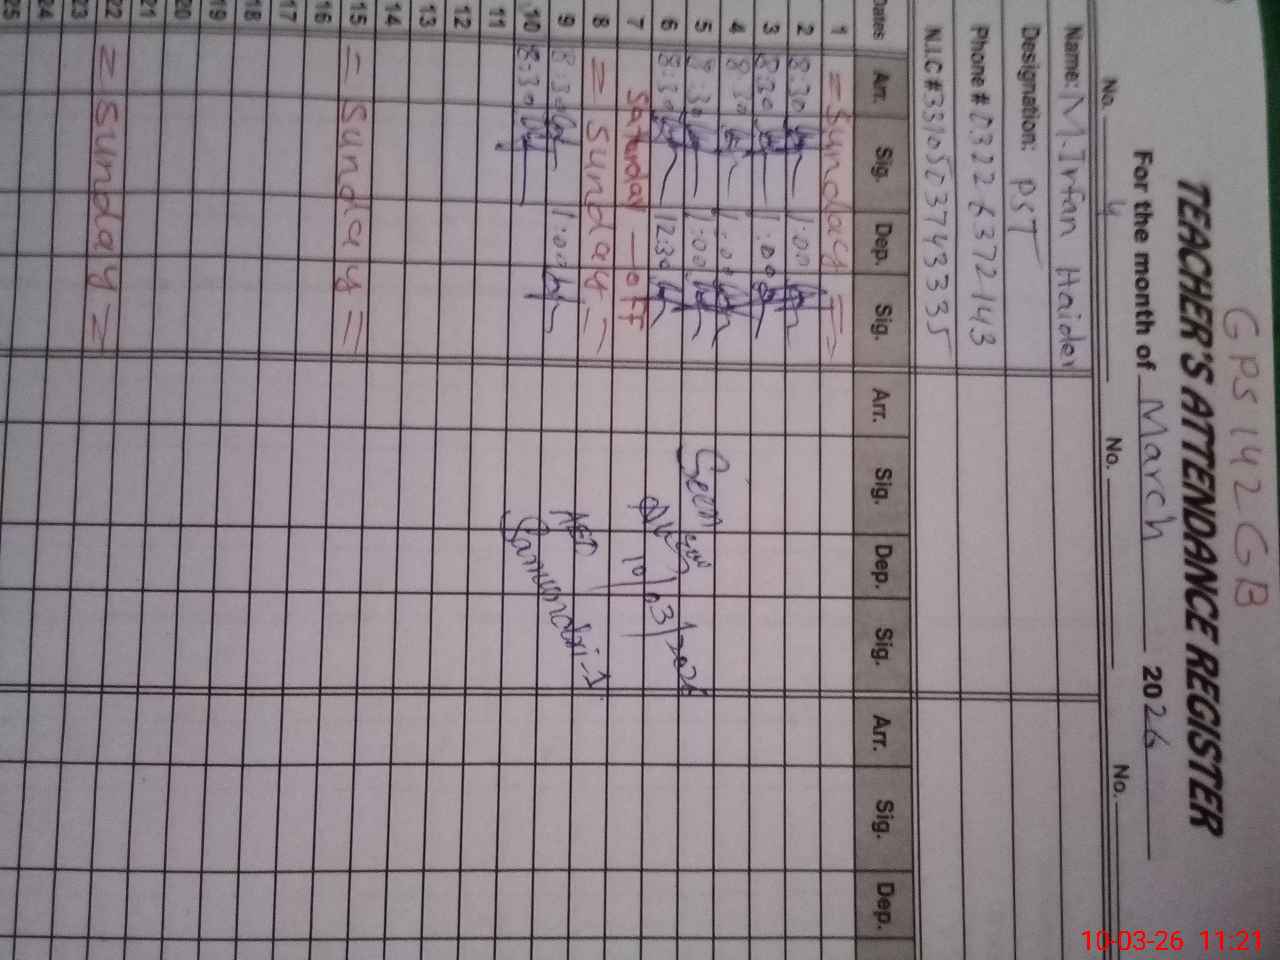 GPS 142 GB
TEACHER'S ATTENDANCE REGISTER
For the month of March 2026
No. 4 No. No.
Name: M. Irfan Haider
Designation: PST
Phone # 03226372143
N.I.C # 3310503743335
Dates Arr. Sig. Dep. Sig. Arr. Sig. Dep. Sig. Arr. Sig. Dep.
1 = Sunday =
2 8:30 1:00
3 8:30 1:00
4 8:30 1:00
5 8:30 1:00
6 8:30 12:30
7 Saturday - off
8 = Sunday =
9 8:30 1:00
10 8:30
11
12
13
14
15 = Sunday =
16
17
18
19
20
21
22 = Sunday =
23
24
25
Seen
10/03/2026
AEO
10-03-26 11:21